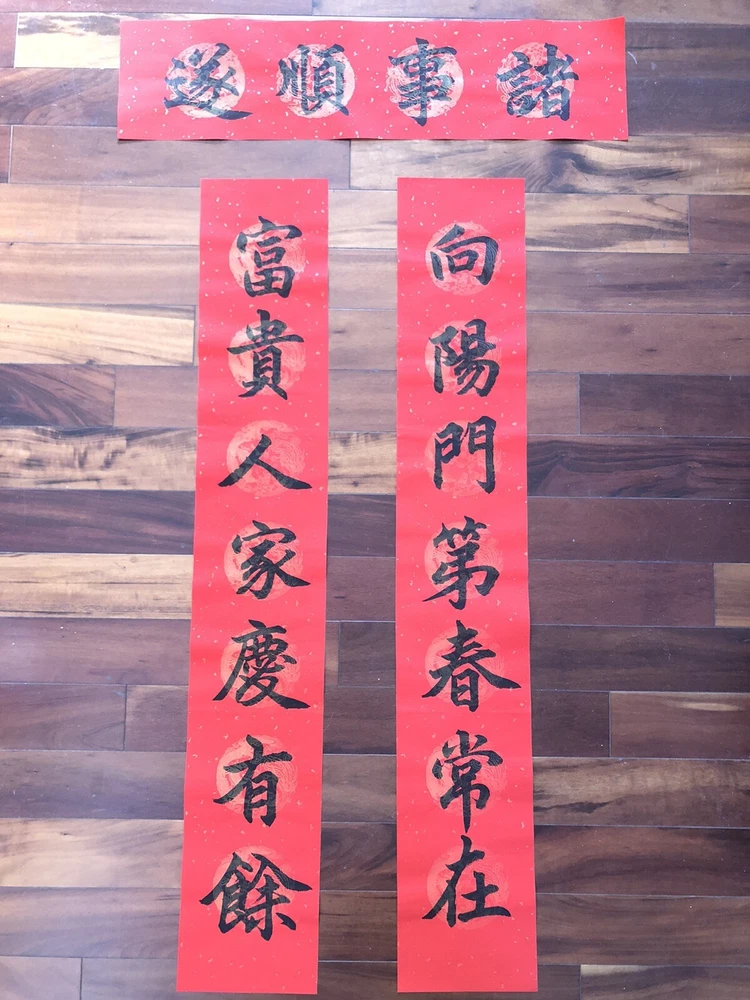 諸事順遂
向陽門第春常在
富貴人家慶有餘